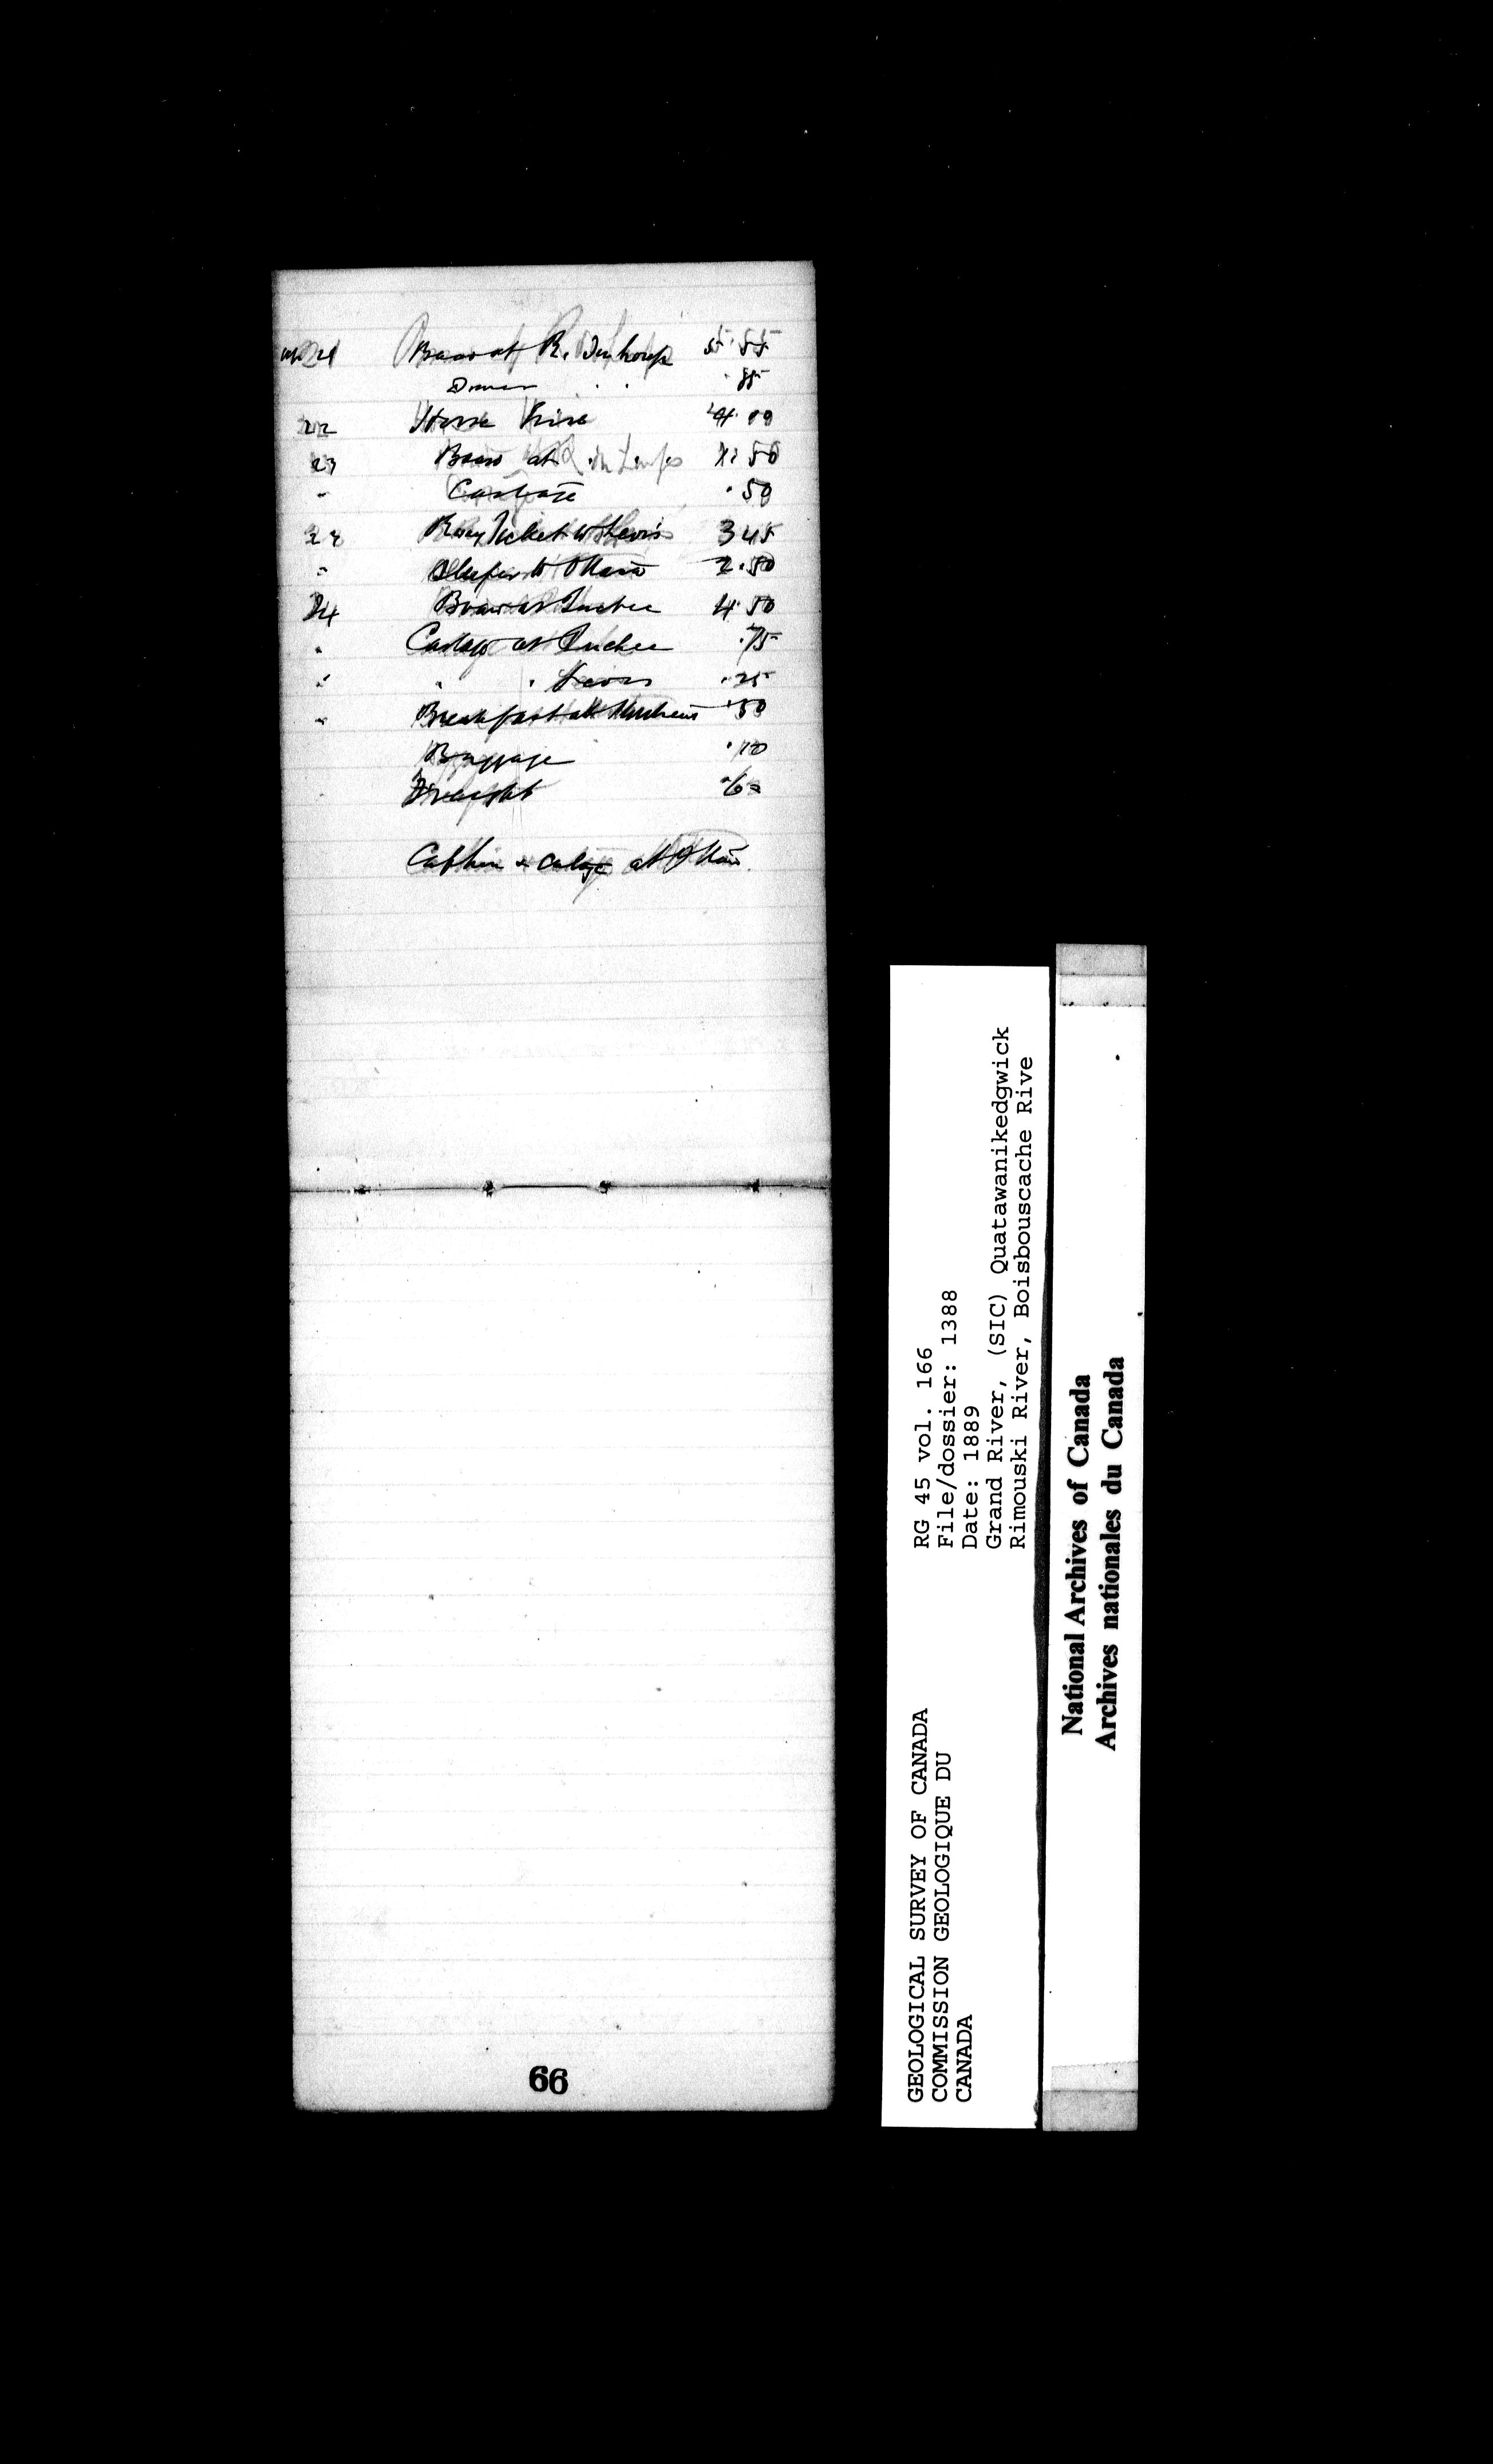 21 Board at R. du Loup 5.55
Dinner " " .85
22 Horse hire 4.00
23 Board at R. du Loup 1.50
" Cartage .50
23 Rway Ticket to Levis 3 45
" Sleeper to Ottawa 2.50
24 Board at Quebec 4.50
" Cartage at Quebec .75
" " " Levis .25
" Breakfast at .50
Baggage .10
Freight
Cabhire & catage at Ottawa
66
RG 45 vol. 166
File/dossier: 1388
Date: 1889
Grand River, (SIC) Quatawanikedgwick
Rimouski River, Boisbouscache Rive
GEOLOGICAL SURVEY OF CANADA
COMMISSION GEOLOGIQUE DU
CANADA
National Archives of Canada
Archives nationales du Canada